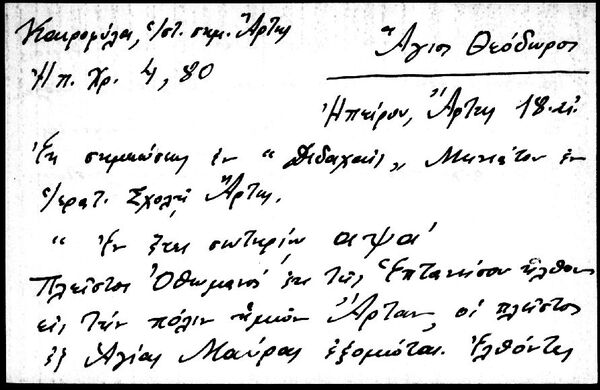 Καιρομύλαι, Ἱστ. σημ. Ἄρτης
Ἠπ. Χρ. 4, 80
Ἅγιος Θεόδωρος
Ἠπείρου, Ἄρτης 18
Ἐκ σημειώσεως ἐν " Διδαχαῖς " Μηνιάτου ἐν
Ἱερατ. Σχολῇ Ἄρτης.
" Ἐν ἔτει σωτηρίῳ αψα'
Πλεῖστοι Ὀθωμανοὶ ἐκ τῆς Ἑπτανήσου ἦλθον
εἰς τὴν πόλιν ἡμῶν Ἄρταν, οἱ πλεῖστοι
ἐξ Ἁγίας Μαύρας ἐξομιόται. Ἐλθόντες